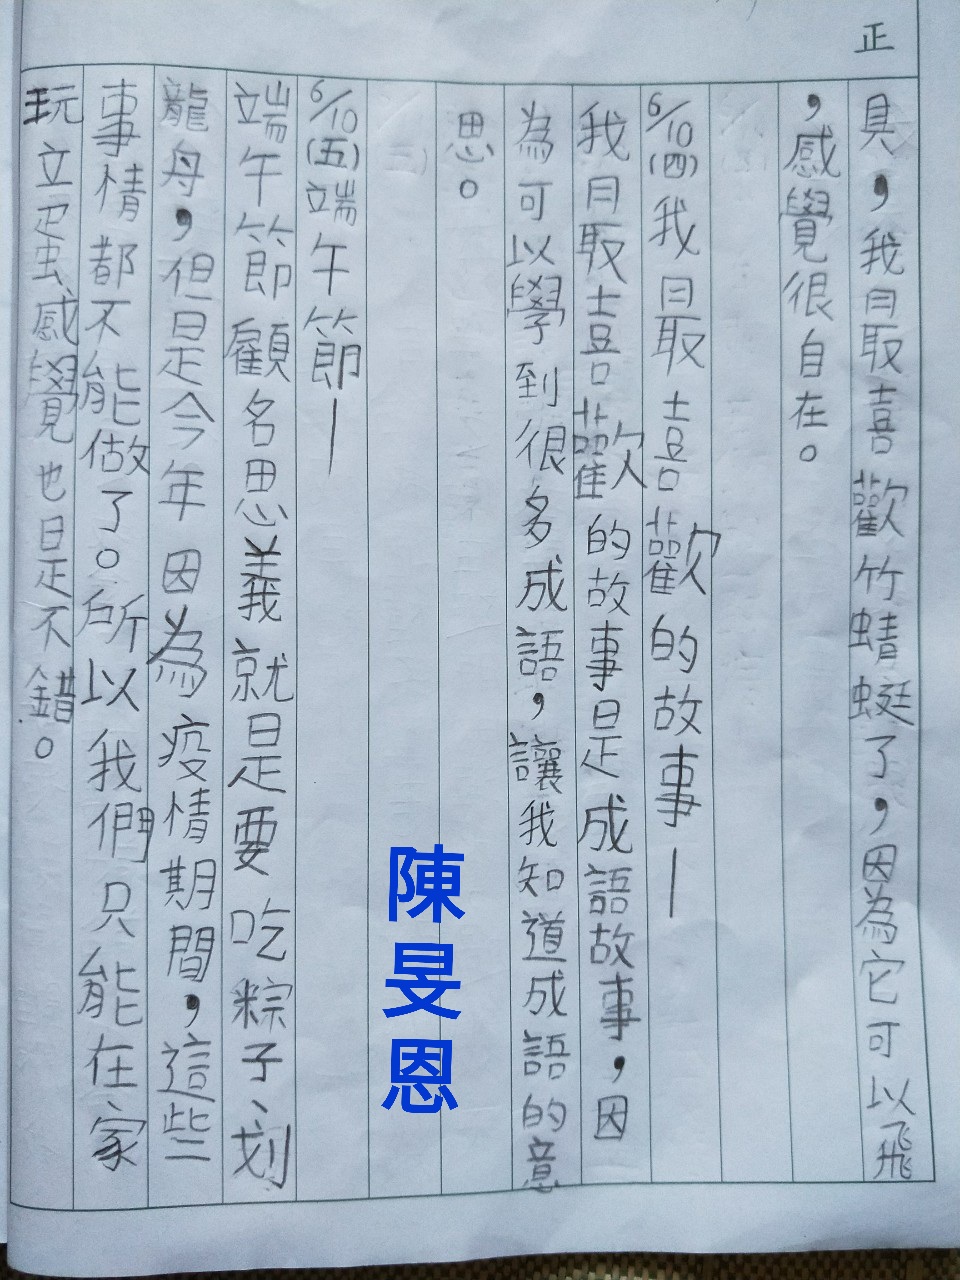 正
具，我最喜歡竹蜻蜓了，因為它可以飛
，感覺很自在。
6/10(四)我最喜歡的故事—
我最喜歡的故事是成語故事，因
為可以學到很多成語，讓我知道成語的意
思。
6/10(五)端午節—
端午節顧名思義就是要吃粽子、划
龍舟，但是今年因為疫情期間，這些
事情都不能做了。所以我們只能在家
玩立蛋，感覺也是不錯。
陳旻恩